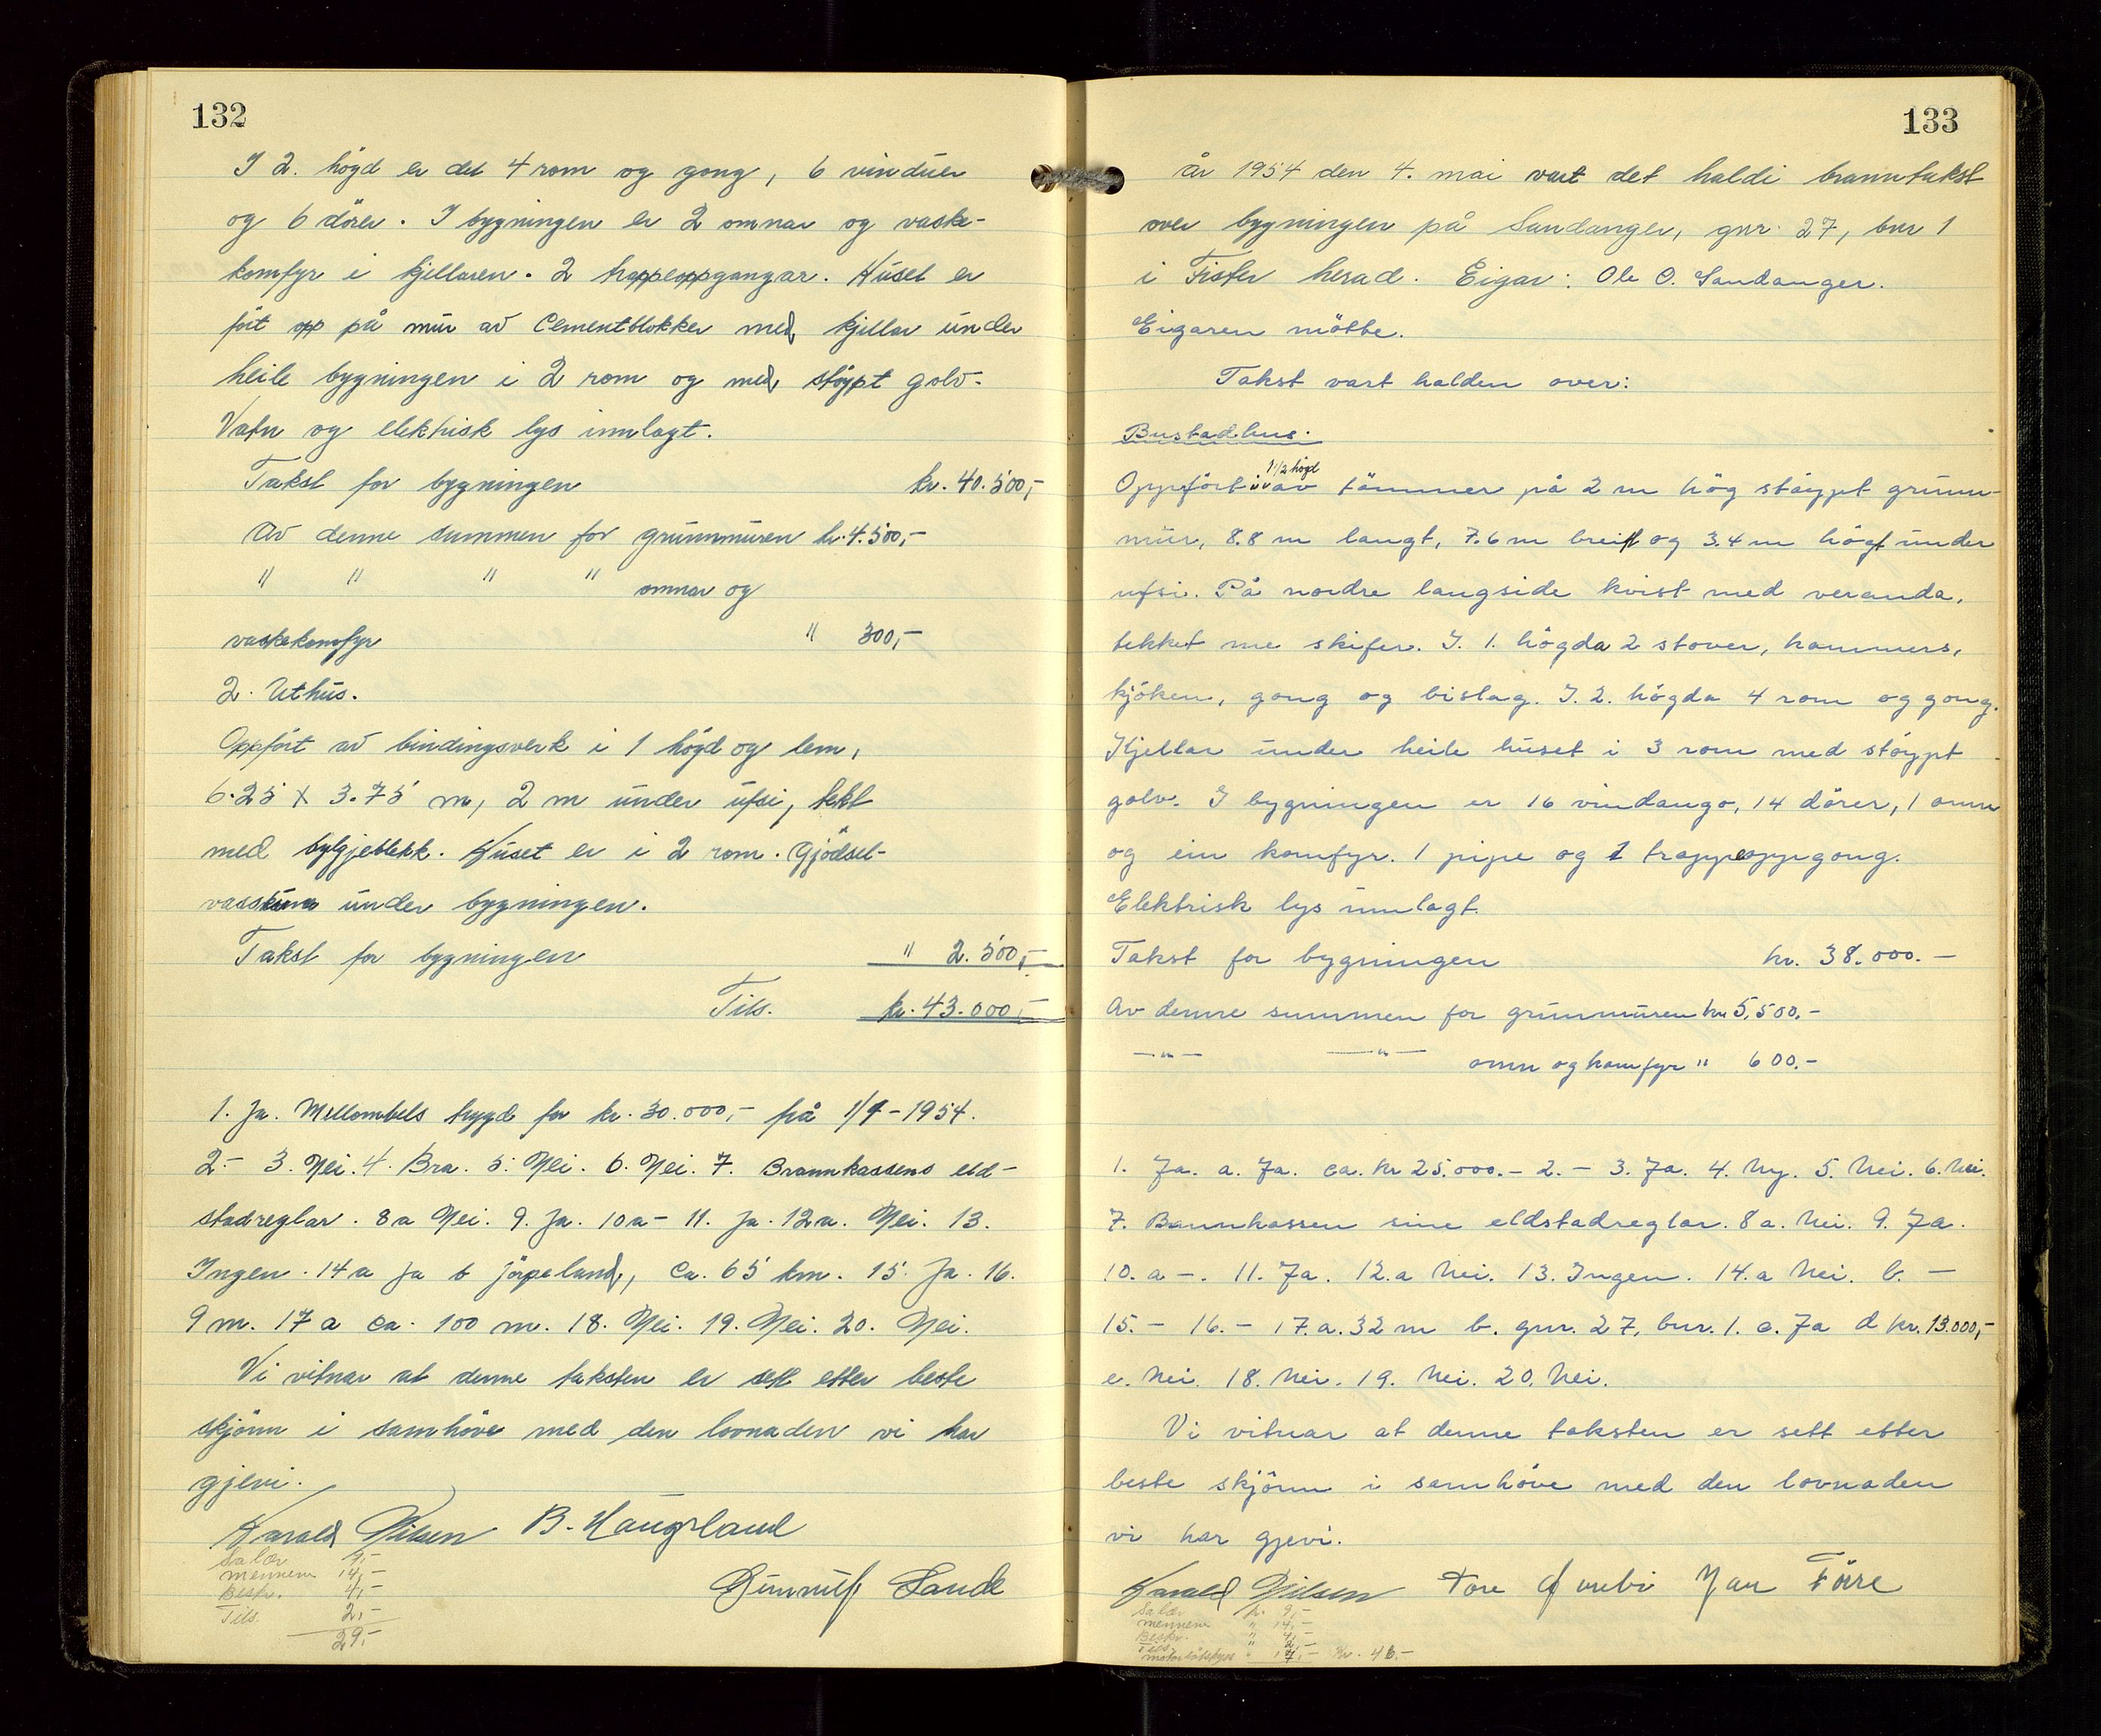 132
I 2. högd er det 4 rom og gong, 6 vinduer
og 6 dörer. I bygningen er 2 omnar og vaske-
komfyr i kjellaren. 2 trappeoppgangar. Huset er
fört opp på mur av Cementblokker med kjellar under
heile bygningen i 2 rom og med stöypt golv.
Vatn og elektrisk lys innlagt.
Takst for bygningen kr. 40.500,-
Av denne summen for grunnmuren kr. 4.500,-
" " " " omnar og
vaskekomfyr " 300,-
2. Uthus.
Oppfört av bindingsverk i 1 högd og lem,
6.25 x 3.75 m, 2 m under ufsi, tekt
med bylgjeblekk. Huset er i 2 rom. Gjödsel-
vasskum under bygningen.
Takst for bygningen " 2.500,-
Tils. kr. 43.000,-
1. Ja. Mellombels trygd for kr. 30.000,- på 1/4-1954.
2.- 3. Nei. 4. Bra. 5. Nei. 6. Nei. 7. Brannkassens eld-
stadreglar. 8a Nei. 9. Ja. 10a- 11. Ja. 12a. Nei. 13.
Ingen. 14a Ja b Jörpeland, ca. 65 km. 15. Ja. 16.
9 m. 17 a ca. 100 m. 18. Nei. 19. Nei. 20. Nei.
Vi vitnar at denne taksten er sett etter beste
skjönn i samhöve med den lovnaden vi har
gjevi.
Harald Nilsen B. Haugsland
Gunnulf Lande
Salær 9,-
mennene 14,-
Beskr. 4,-
Tils. 2,-
29,-
133
År 1954 den 4. mai vart det haldi branntakst
over bygningen på Sandanger, gnr. 27, bnr 1
i Fister herad. Eigar: Ole O. Sandanger.
Eigaren mötte.
Takst vart halden over:
Bustadhus.
1 1/2 högd
Oppfört i av tömmer på 2 m hög stöypt grunn-
mur, 8.8 m langt, 7.6 m breitt og 3.4 m högt under
ufsi. På nordre langside kvist med veranda,
tekket me skifer. I. 1. högda 2 stover, kammers,
kjöken, gong og bislag. I. 2. högda 4 rom og gong.
Kjellar under heile huset i 3 rom med stöypt
golv. I bygningen er 16 vindaugo, 14 dörer, 1 omn
og ein komfyr. 1 pipe og 1 trappeoppgong.
Elektrisk lys innlagt.
Takst for bygningen kr. 38.000.-
Av denne summen for grunnmuren kr 5,500.-
-"- -"- omn og komfyr " 600.-
1. Ja. a. Ja. ca. kr 25.000.- 2. - 3. Ja. 4. Ny. 5. Nei. 6. Nei.
7. Bannkassen sine eldstadreglar. 8 a. Nei. 9. Ja.
10. a -. 11. Ja. 12. a Nei. 13. Ingen. 14. a Nei. b. -
15. - 16. - 17. a. 32 m b. gnr. 27, bnr. 1. c. Ja d kr. 13.000,-
e. Nei. 18. Nei. 19. Nei. 20. Nei.
Vi vitnar at denne taksten er sett etter
beste skjönn i samhöve med den lovnaden
vi har gjevi.
Harald Nilsen Tore Jan Före
Salær kr. 9,-
mennene " 14,-
Beskr. " 4,-
Tils. " 2,-
motorbåtskyss " 17,- Kr. 46.-